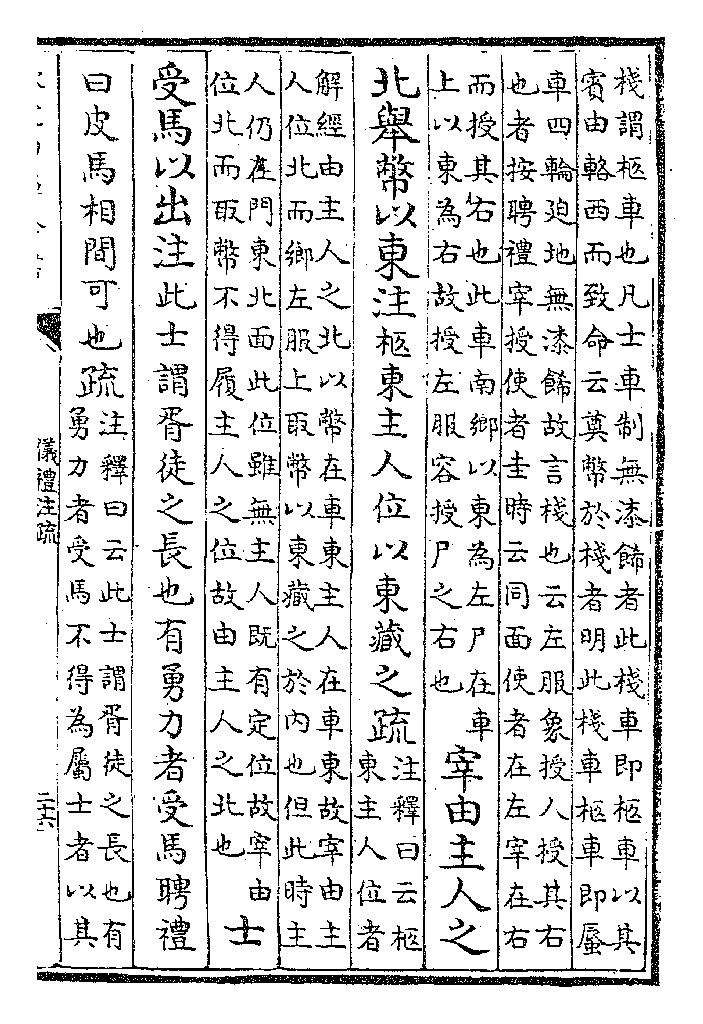 棧謂柩車也凡士車制無漆飾者此棧車即柩車以其
賓由輅西而致命云奠幣於棧者明此棧車柩車即蜃
車四輪迫地無漆飾故言棧也云左服象授人授其右
也者按聘禮宰授使者圭時云同面使者在左宰在右
而授其右也此車南鄉以東為左尸在車
上以東為右故授左服容授尸之右也
宰由主人之
北舉幣以東注柩東主人位以東藏之疏
注釋曰云柩
東主人位者
解經由主人之北以幣在車東主人在車東故宰由主
人位北而鄉左服上取幣以東藏之於內也但此時主
人仍在門東北面此位雖無主人既有定位故宰由
位北而取幣不得履主人之位故由主人之北也
士
受馬以出注此士謂胥徒之長也有勇力者受馬聘禮
曰皮馬相間可也疏
注釋曰云此士謂胥徒之長也有
勇力者受馬不得為屬士者以其
儀禮注疏
二十六